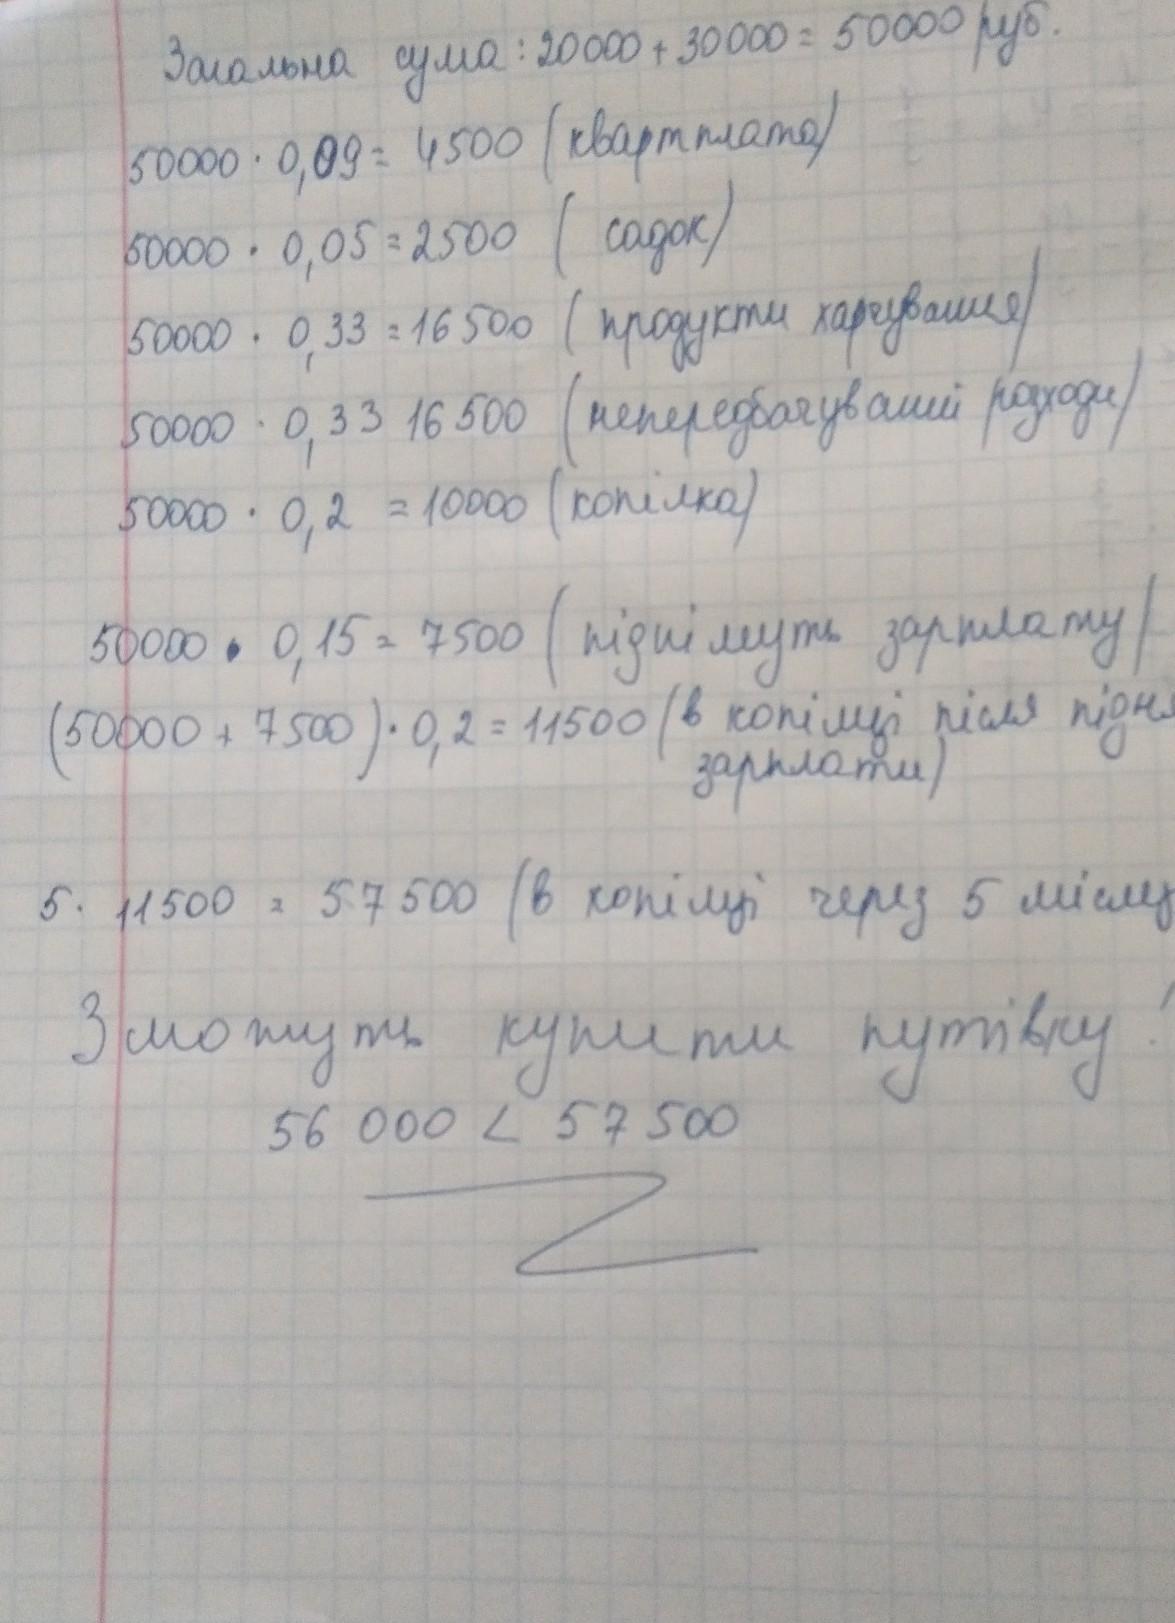 Загальна сума: 20000 + 30000 = 50000 руб.
50000 · 0,09 = 4500 (квартплата)
50000 · 0,05 = 2500 ( садок)
50000 · 0,33 = 16500 (продукти харчування)
50000 · 0,33 16500 (непередбачувані розходи)
50000 · 0,2 = 10000 (копілка)
50000 · 0,15 = 7500 (піднімуть зарплату)
(50000 + 7500) · 0,2 = 11500 (в копілці після підня
зарплати)
5 · 11500 = 57500 (в копілці через 5 місяц
Зможуть купити путівку!
56 000 < 57 500